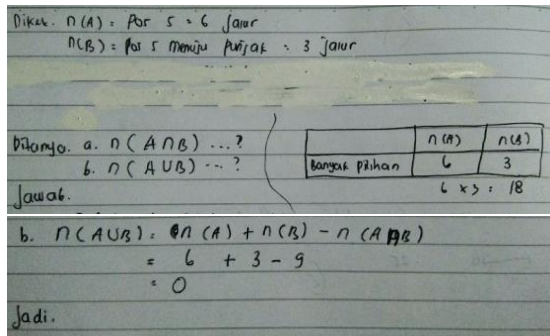 Diket. n(A) = Pos 5 = 6 jalur
n(B) = Pos 5 menuju puncak = 3 jalur
Ditanya. a. n(A∩B) ...?
b. n(A∪B) ...?
n(A) n(B)
Banyak pilihan 6 3
6 x 3 = 18
Jawab.
b. n(A∪B) = n(A) + n(B) - n(A∩B)
= 6 + 3 - 9
= 0
Jadi.